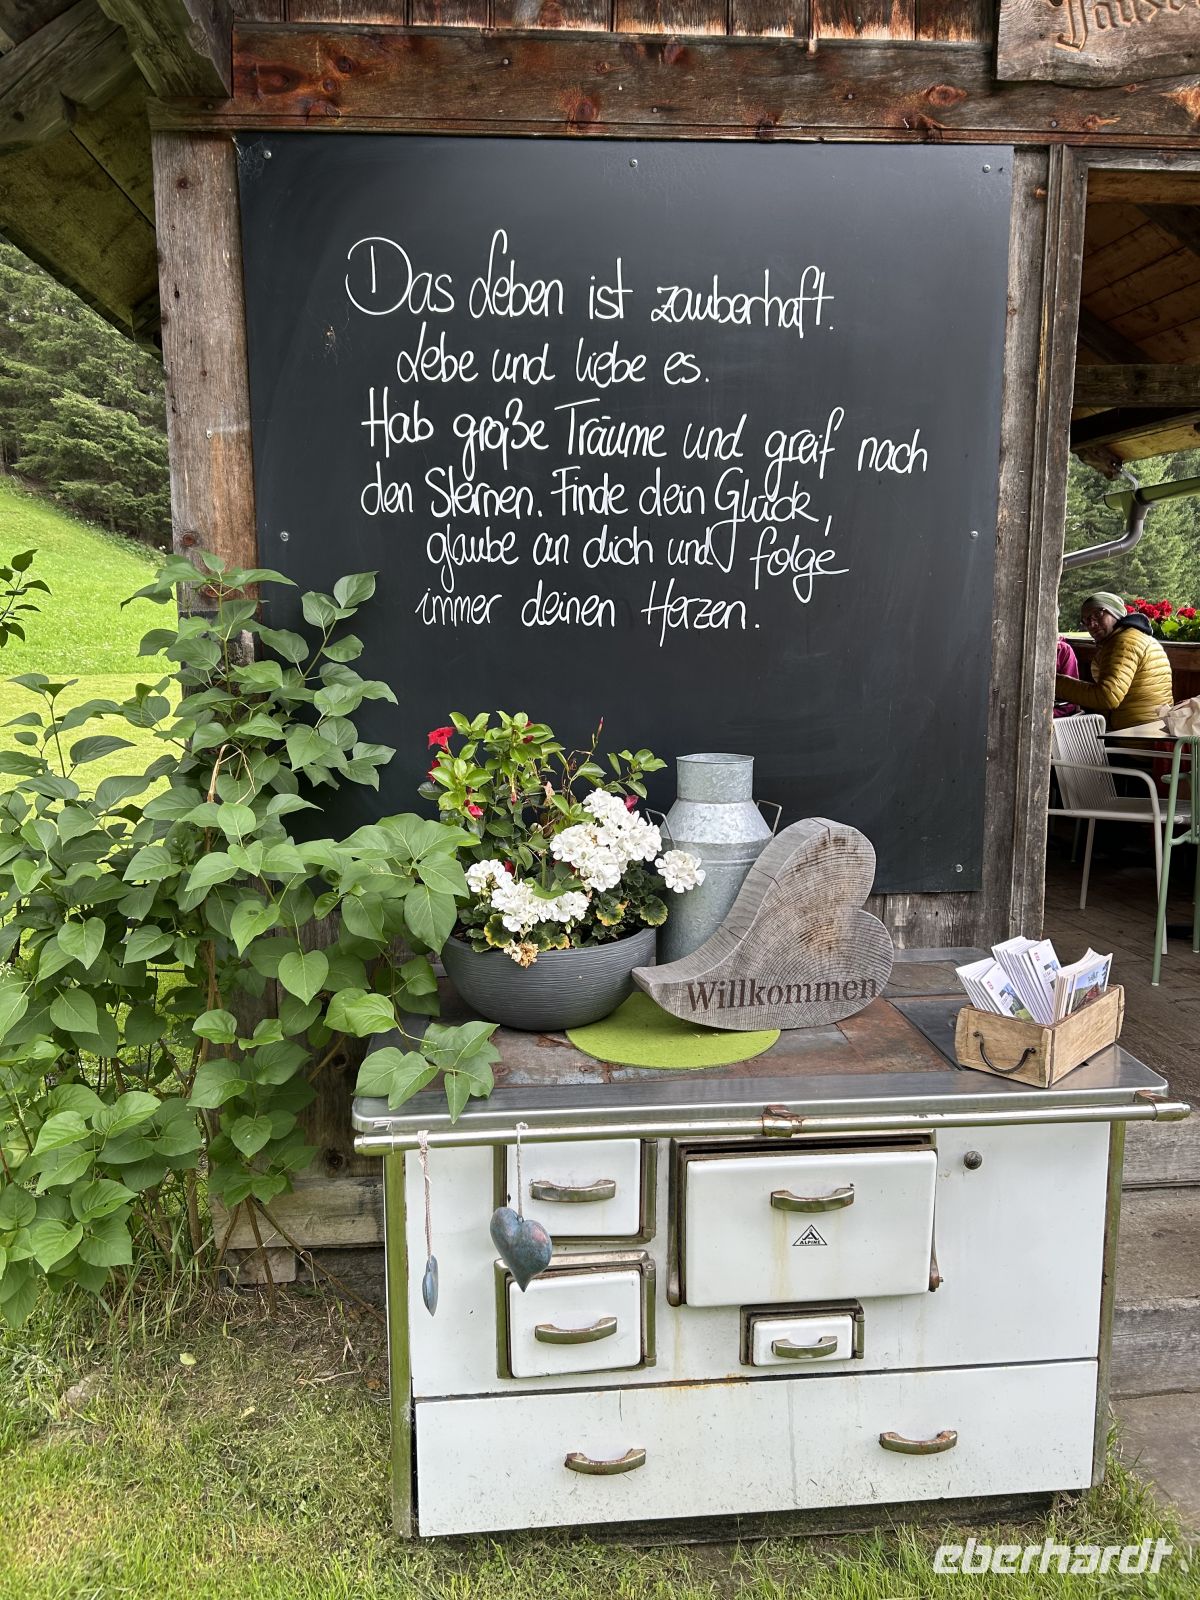 Das Leben ist zauberhaft.
Lebe und liebe es.
Hab große Träume und greif nach
den Sternen. Finde dein Glück,
glaube an dich und folge
immer deinen Herzen.
Willkommen
ALPINE
eberhardt